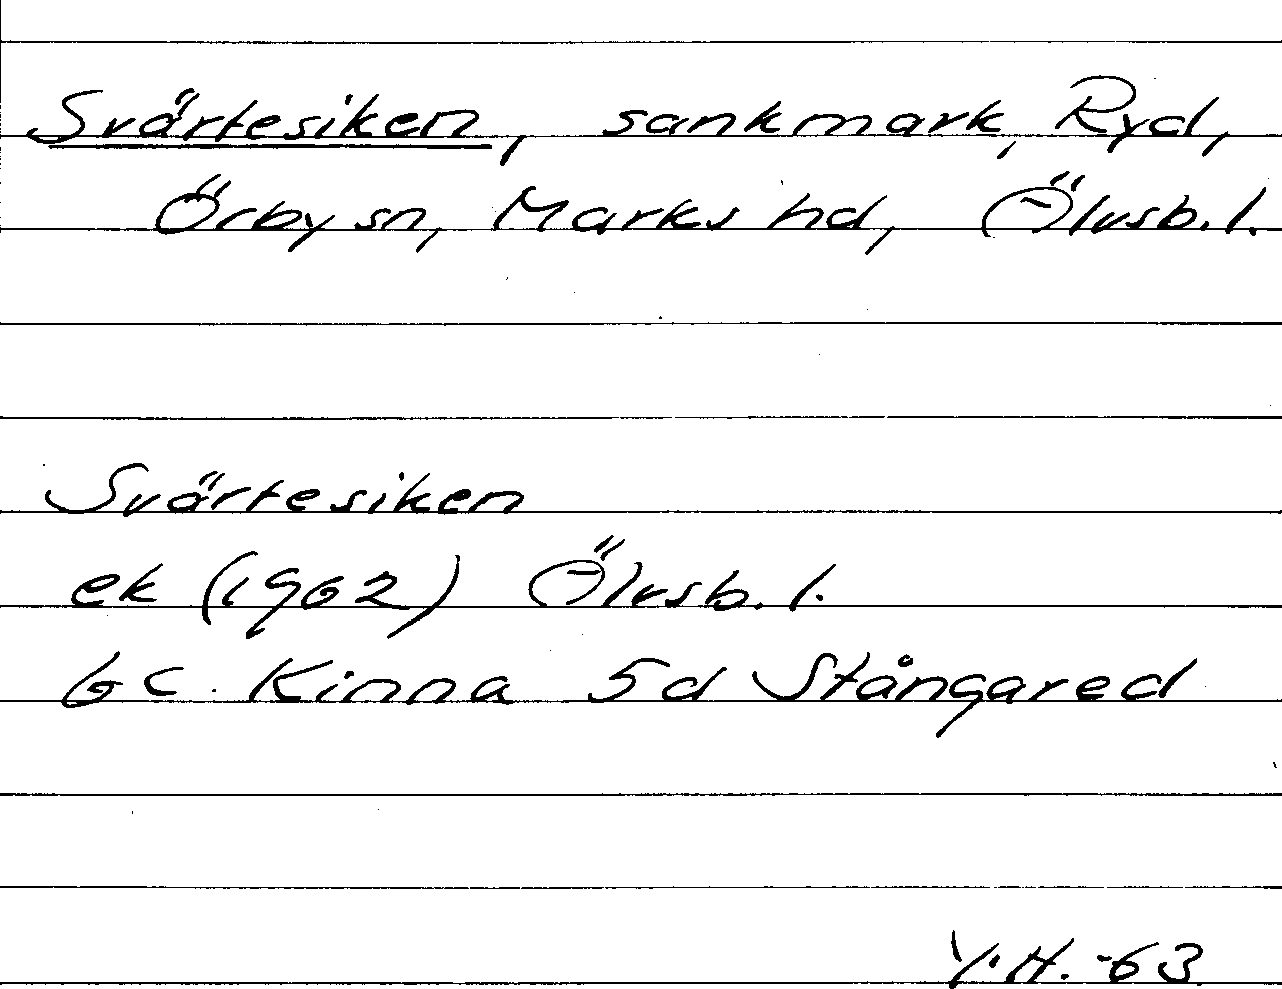 Svärtesiken, sankmark, Ryd,
Örby sn, Marks hd, Älvsb. l.
Svärtesiken
ek (1962) Älvsb. l.
6 C Kinna 5d Stångared
Y.H. -63